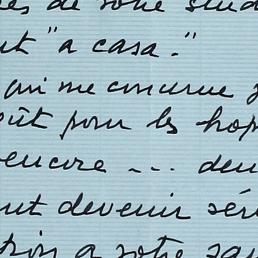 es de votre stud
ut "a casa."
qui me concerne j
oût pour les hop
encore --- deu
ut devenir séri
tion a votre san